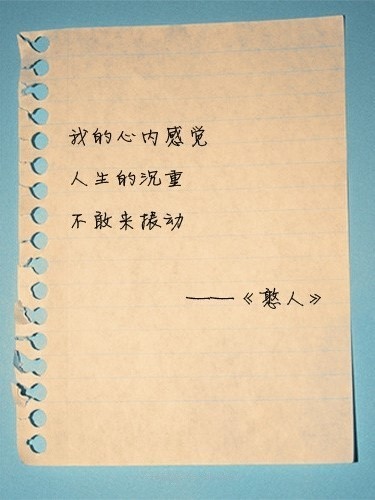 我的心内感觉
人生的沉重
不敢来振动
——《憨人》